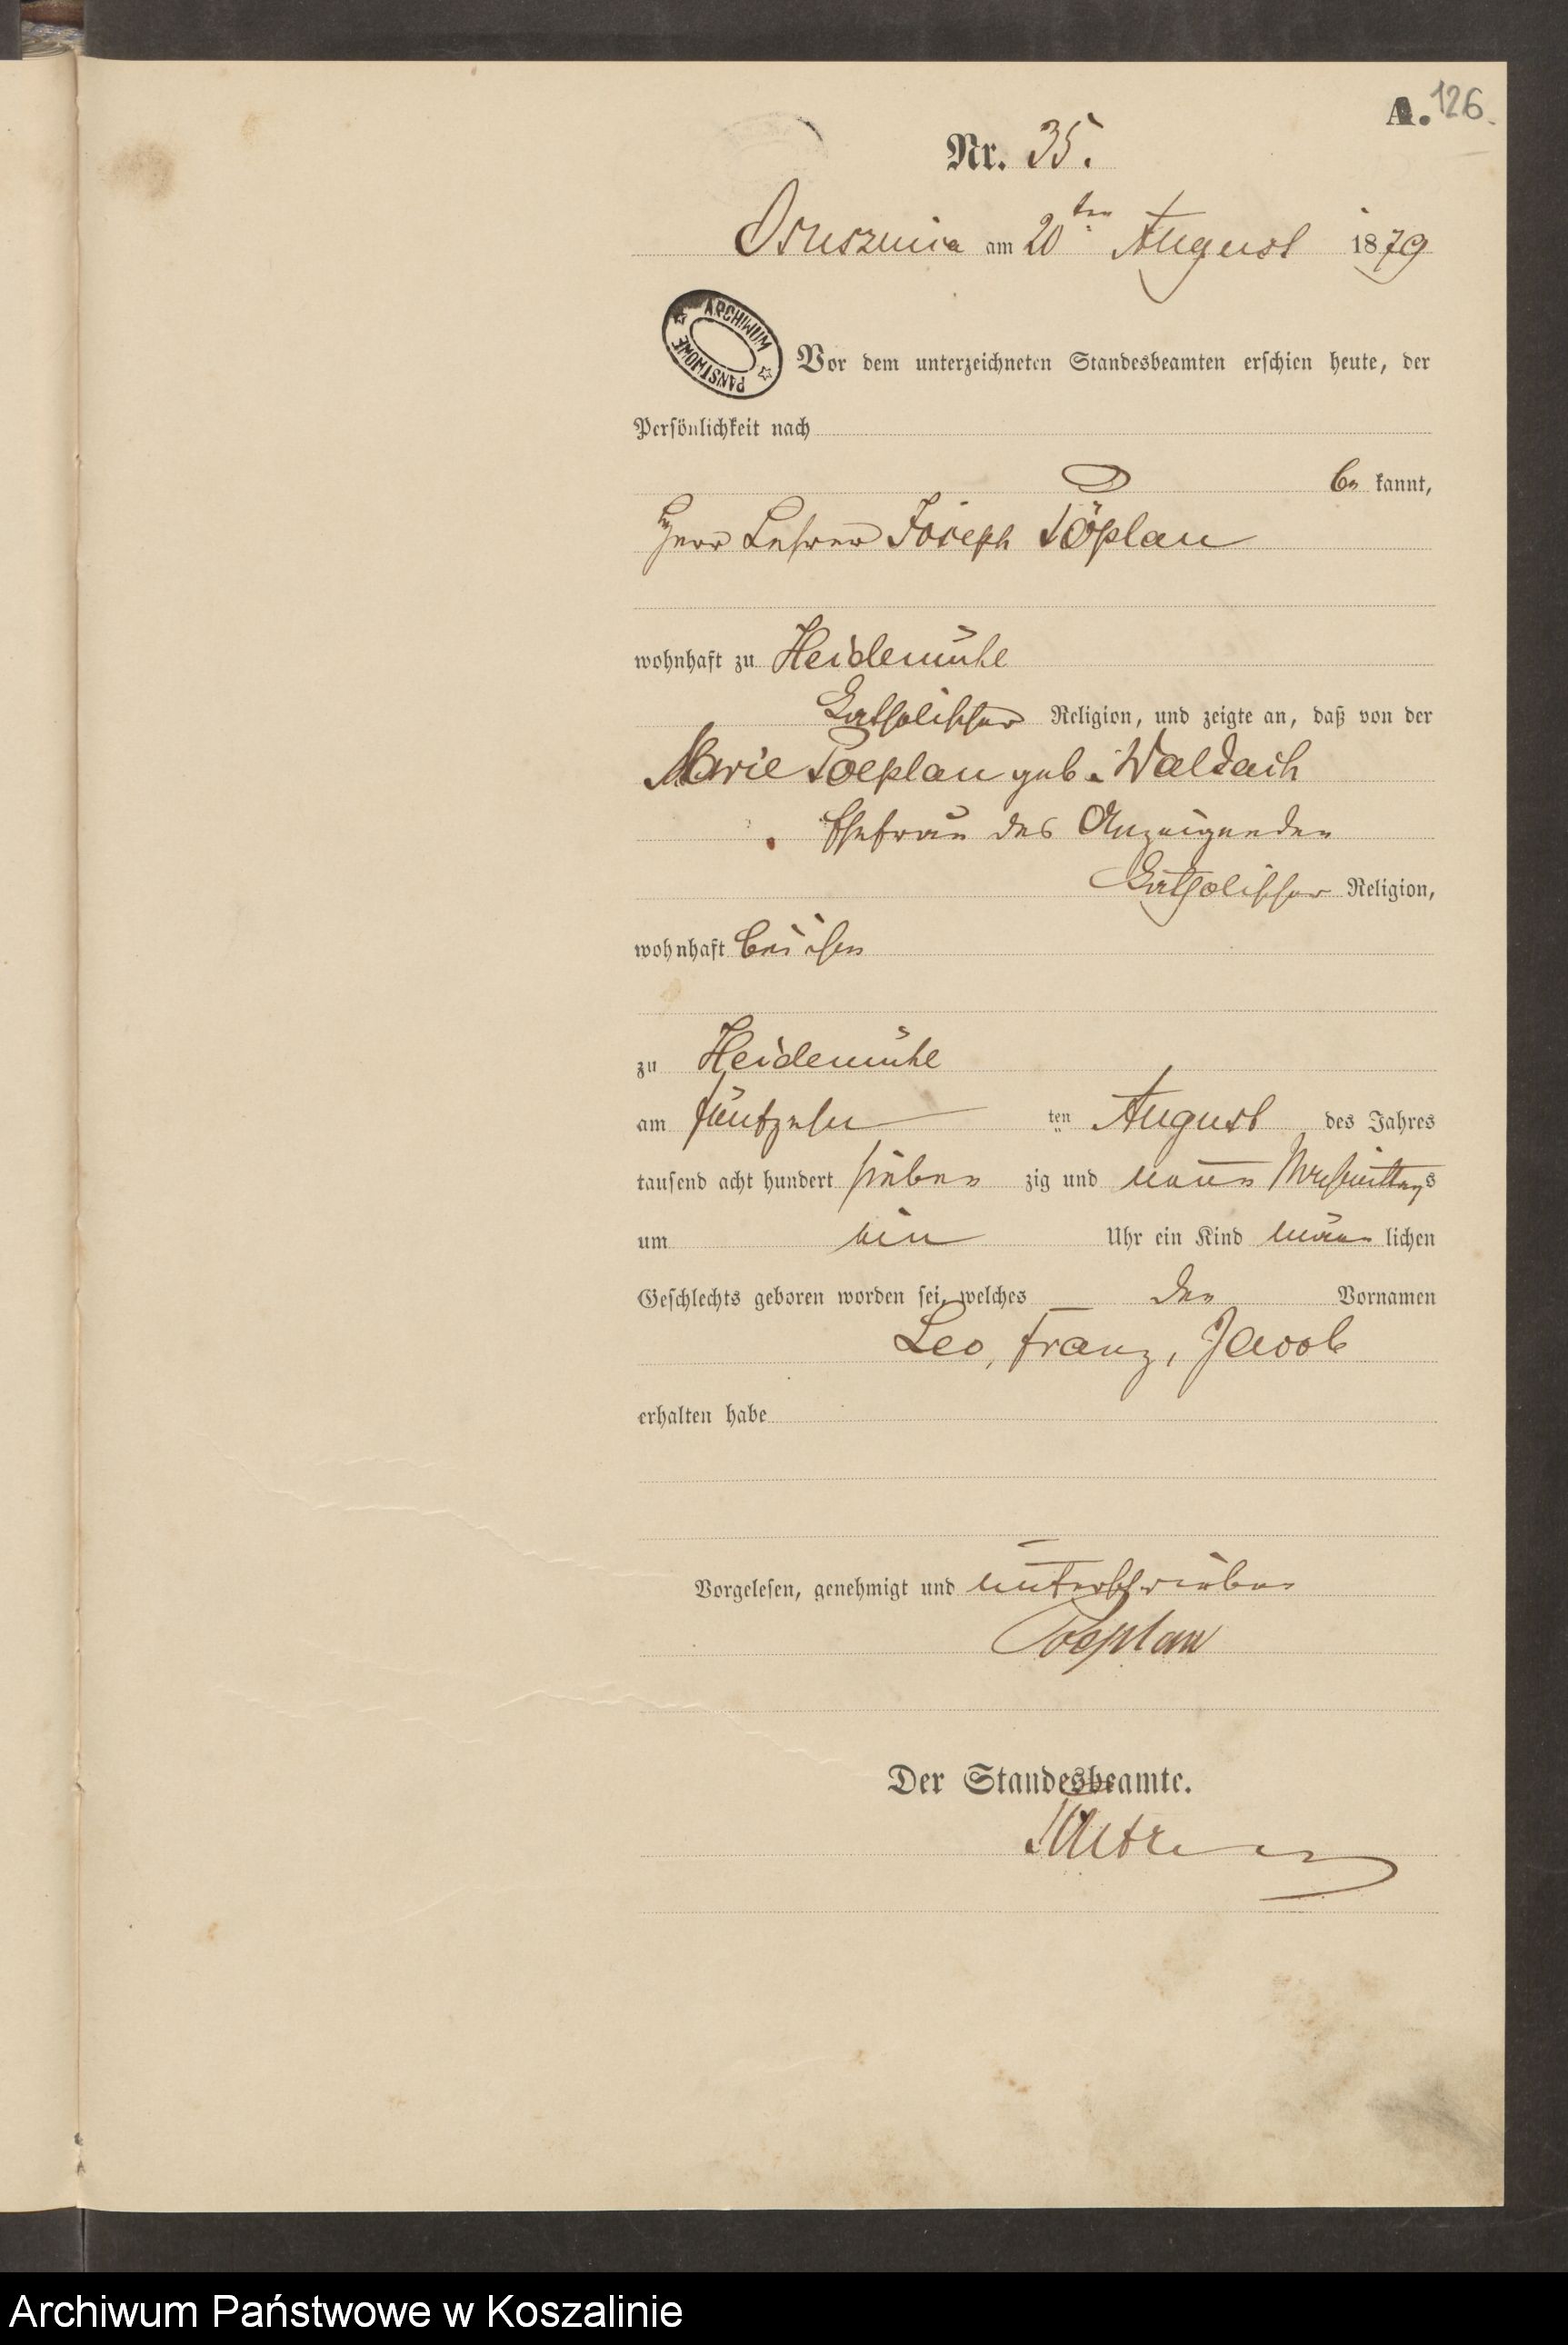 A. 126.
Nr. 35.
Osuszniza am 20ten August 1879
ARCHIWUM PAŃSTWOWE
Vor dem unterzeichneten Standesbeamten erschien heute, der
Persönlichkeit nach
be kannt,
Herr Lehrer Joseph Pöplau
wohnhaft zu Heidemühl
katholischer Religion, und zeigte an, daß von der
Marie Poeplau geb. Waldach
Ehefrau des Anzeigenden
katholischer Religion,
wohnhaft bei ihm
zu Heidemühl
am fünfzehn ten August des Jahres
tausend acht hundert sieben zig und neun Nachmittags
um ein Uhr ein Kind männ lichen
Geschlechts geboren worden sei, welches den Vornamen
Leo, Franz, Jacob
erhalten habe
Vorgelesen, genehmigt und unterschrieben
Poeplau
Der Standesbeamte.
Archiwum Państwowe w Koszalinie